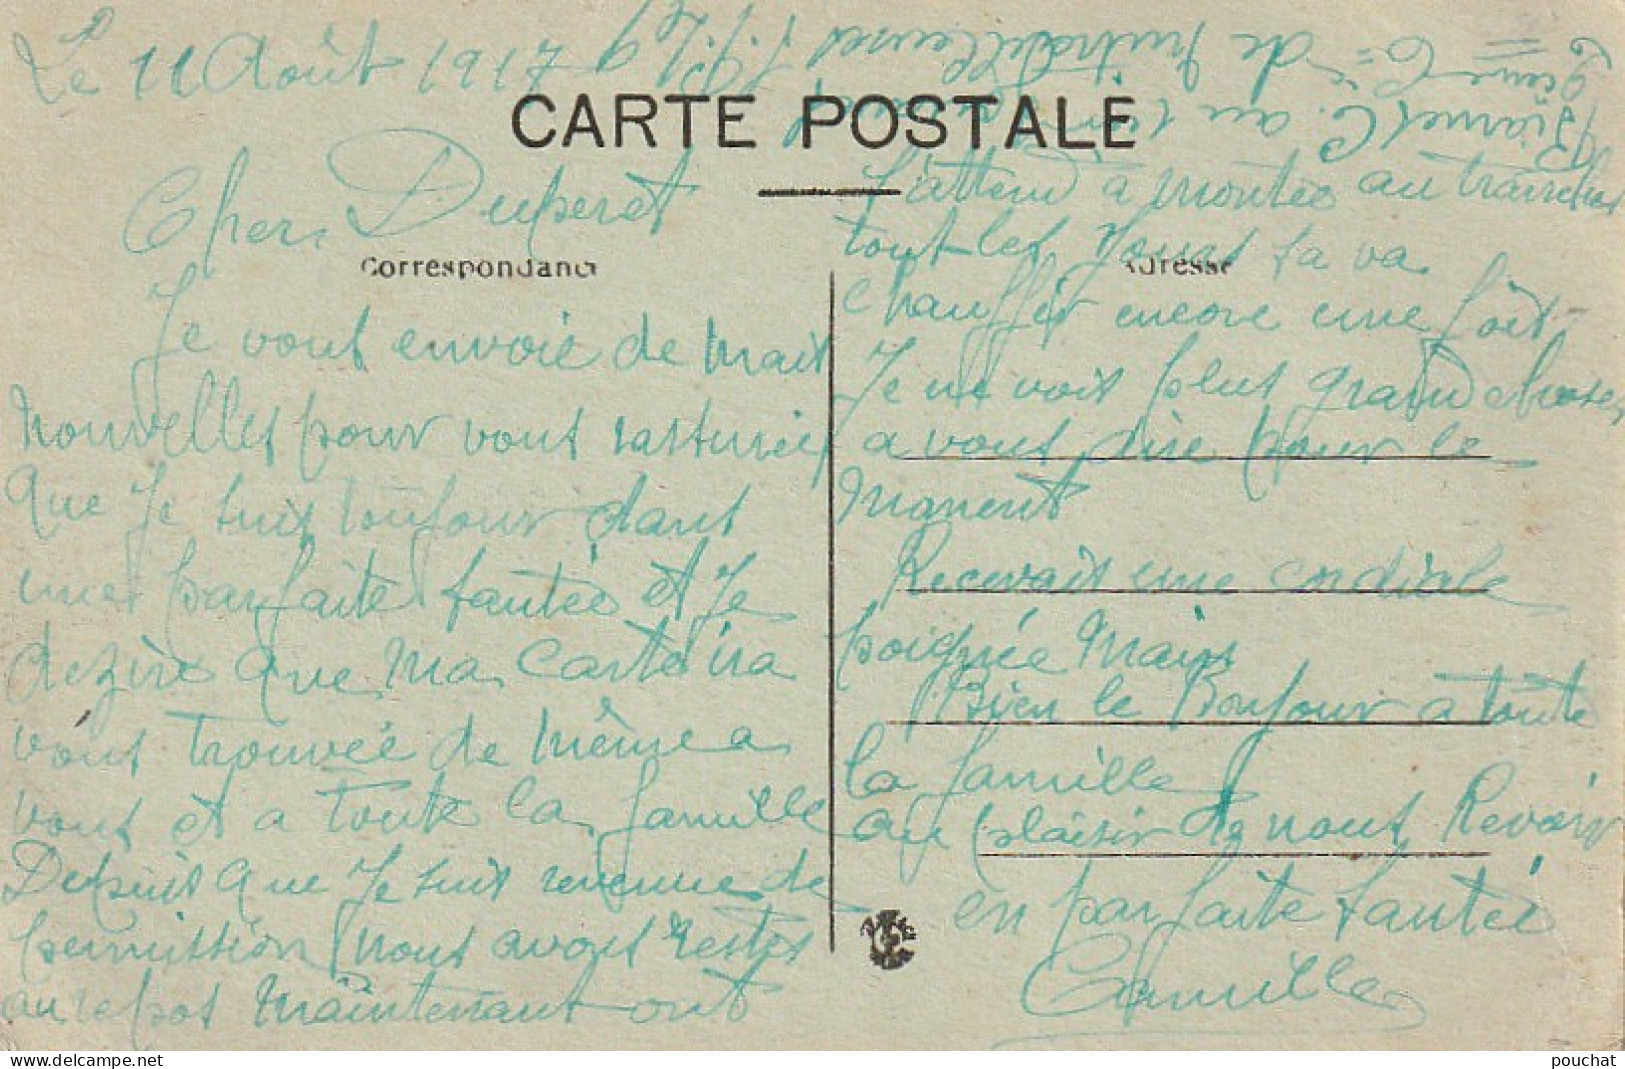 Le 11 Août 1917
CARTE POSTALE
Cher, Duperet
Correspondance
Je vous envoie de mais
nouvelles pour vous rassurée
que Je suis toujour dans
une parfaite santée et Je
dezire que ma carte ira
vous trouvée de même a
vous et a toute la famille
Depuis que Je suis revenue de
permission nous avons restés
au repos maintenant ont
s'attend à montée au tranchés
tout les Jours sa va
Adresse
chauffér encore une fois
Je ne vois plus grand chose
a vous dire pour le
moment
Recevais une cordiale
poignée mains
Bien le Bonjour à toute
la famille
au plaisir de nous Revoir
en parfaite santée
Camille
C. au
9ème Cie de Mitrailleuses
www.delcampe.net
pouchat